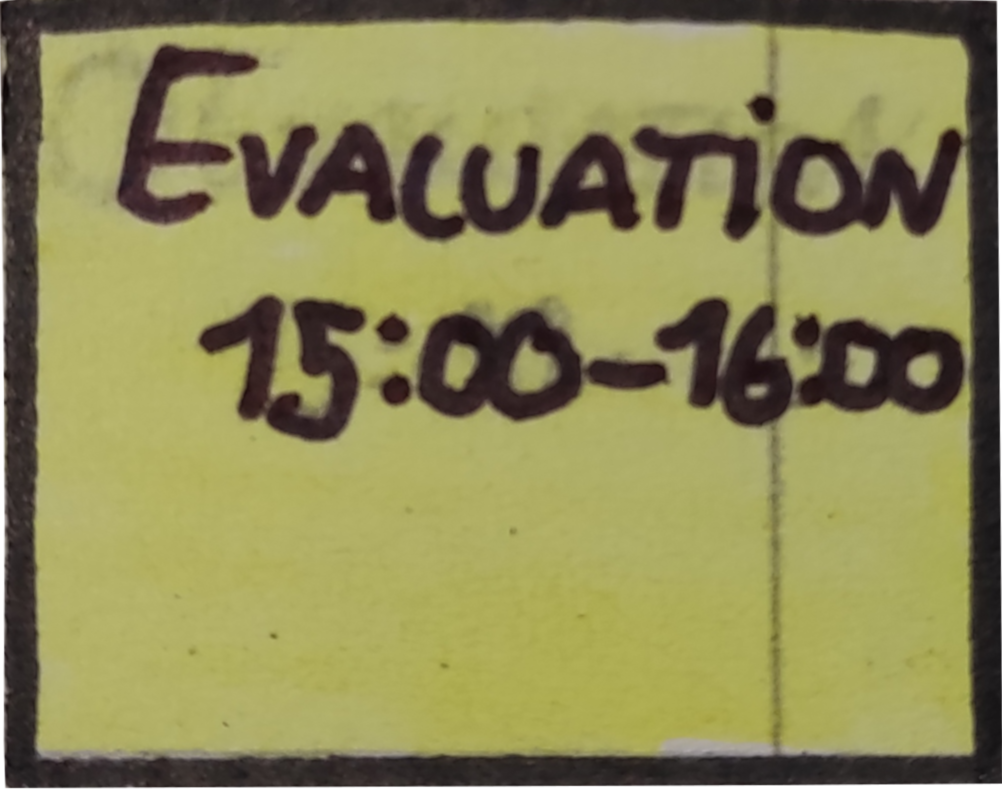 EVALUATiON
15:00-16:00